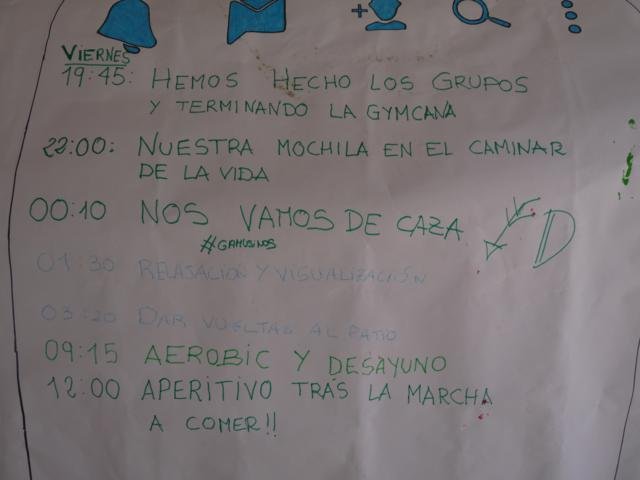 VIERNES
19:45: HEMOS HECHO LOS GRUPOS
Y TERMINANDO LA GYMCANA
22:00: NUESTRA MOCHILA EN EL CAMINAR
DE LA VIDA
00:10 NOS VAMOS DE CAZA
#GAMUSINOS
01:30 RELAJACIÓN Y VISUALIZACIÓN
03:20 DAR VUELTAS AL PATIO
09:15 AEROBIC Y DESAYUNO
12:00 APERITIVO TRAS LA MARCHA
A COMER!!